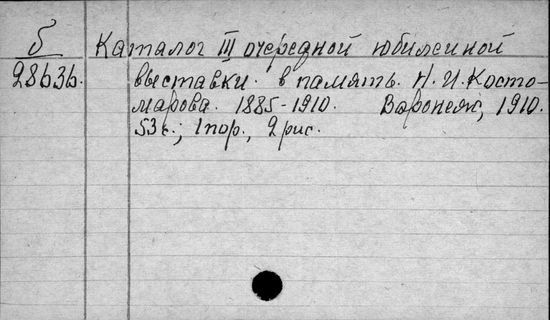 б
Каталог III очередной юбилейной
28636. выставки в память Н. И. Косто-
марова. 1885-1910. Воронеж, 1910.
53 с.; 1 пор., 2 рис.